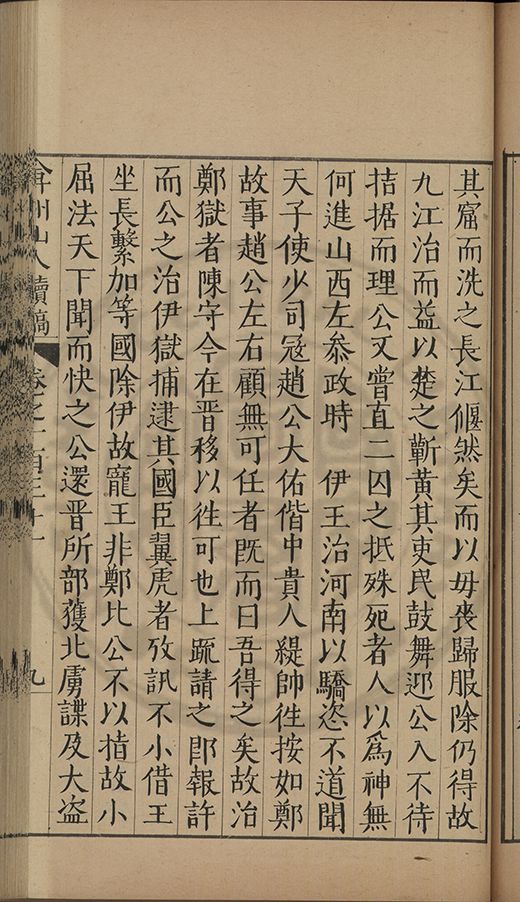 其窟而洗之長江偃然矣而以毋喪歸服除仍得故
九江治而益以楚之蘄黃其吏民鼓舞迎公入不待
拮据而理公又嘗直二囚之抵殊死者人以為神無
何進山西左叅政時　伊王治河南以驕恣不道聞
天子使少司寇趙公大佑偕中貴人緹帥徃按如鄭
故事趙公左右顧無可任者既而曰吾得之矣故治
鄭獄者陳守今在晋移以徃可也上䟽請之卽報許
而公之治伊獄捕逮其國臣翼虎者攷訊不小借王
坐長繫加等國除伊故寵王非鄭比公不以指故小
屈法天下聞而快之公還晋所部獲北虜諜及大盗
弇州山人續稿 卷之一百三十一 九